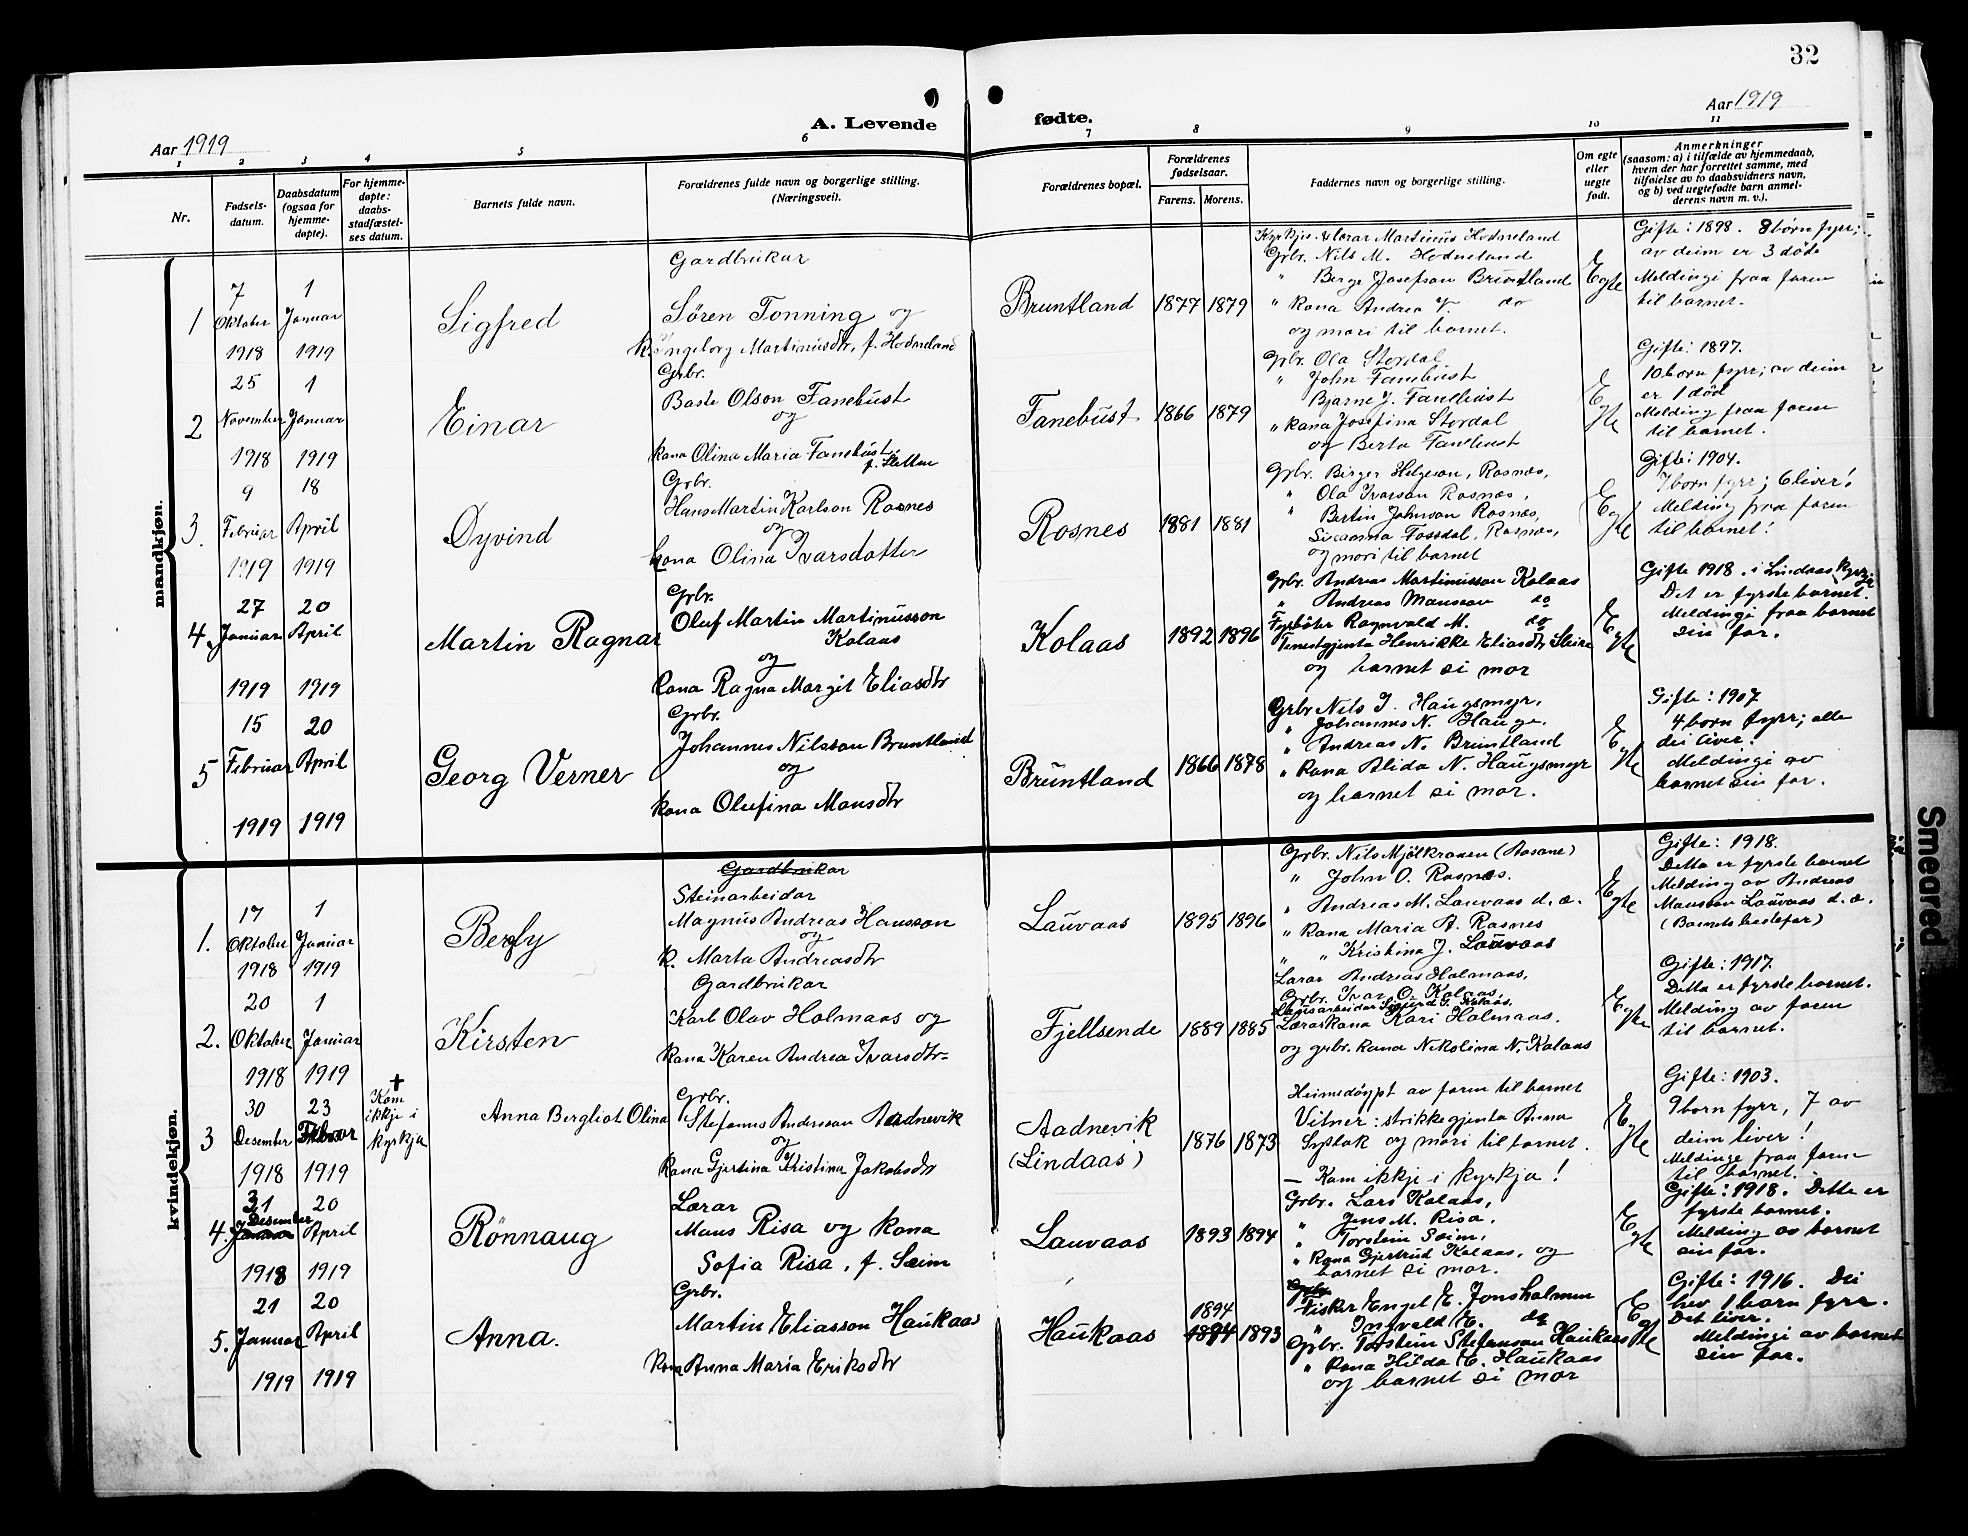 32
A. Levende fødte.
Aar 1919
Aar 1919
1 2 3 4 5 6 7 8 9 10 11
Nr.
Fødsels-
datum.
Daabsdatum
(ogsaa for
hjemme-
døpte).
For hjemme-
døpte:
daabs-
stadfæstel-
ses datum.
Barnets fulde navn.
Forældrenes fulde navn og borgerlige stilling.
(Næringsvei).
Forældrenes bopæl.
Forældrenes
fødselsaar.
Farens. Morens.
Faddernes navn og borgerlige stilling.
Om egte
eller
uegte
født.
Anmerkninger
(saasom: a) i tilfælde av hjemmedaab,
hvem der har forrettet samme, med
tilføielse av to daabsvidners navn,
og b) ved uegtefødte barn anmel-
derens navn m. v.).
mandkjøn.
1
7
Oktober
1918
1
Januar
1919
Sigfred
Gardbrukar
Søren Tonning og
k. Ingeborg Martinusdtr, f. Hodneland
Bruntland
1877 1879
Kyrkjes. Lærar Martinus Hodneland
Grbr. Nils M. Hodneland
" Berge Josefson Bruntland
" kona Andrea J. do
og mori til barnet.
Egte
Gifte: 1898. 8 born fyrr;
av deim er 3 döde
Meldingi fraa faren
til barnet.
2
25
November
1918
1
Januar
1919
Einar
Grbr.
Baste Olson Fanebust
og
kona Olina Maria Fanebust
f. Sletten
Fanebust
1866 1879
Grbr. Ola Stordal
" John Fanebust
" Bjarne J. Fanebust
" kona Josefina Stordal
og Berta Fanebust
Egte
Gifte: 1897.
10 born fyrr; av deim
er 1 död
Melding fraa faren
til barnet.
3.
9
Februar
1919
18
April
1919
Øyvind
Grbr.
Hans Martin Karlson Rosnes
og
kona Olina Ivarsdotter
Rosnes
1881 1881
Grbr. Birger Helgeson, Rosnæs,
" Ola Ivarson Rosnæs,
" Bertin Johnson Rosnæs,
Susanna Fossdal, Rosnæs,
og mori til barnet
Egte
Gifte: 1904.
7 born fyrr; 6 liver!
Melding fraa faren
til barnet!
4.
27
Januar
1919
20
April
1919
Martin Ragnar
Grbr.
Oluf Martin Martinusson
Kolaas
og
kona Ragna Margit Eliasdtr
Kolaas
1892 1896
Grbr. Andreas Martinusson Kolaas
" Andreas Mansson do
Fyrbøtr Ragnvald M. do
Tenestgjenta Henrikke Eliasdtr Steine
og barnet si mor
Egte
Gifte 1918. i Lindaas kyrkje
Det er fyrste barnet.
Meldingi fraa barnet
sin far.
5
15
Februar
1919
20
April
1919
Georg Verner
Grbr.
Johannes Nilsson Bruntland
og
kona Olufina Mansdtr
Bruntland
1866 1878
Grbr Nils J. Haugsmyr,
" Johannes N. Hauge.
" Andreas N. Bruntland
" kona Alida N. Haugsmyr
og barnet si mor.
Egte
Gifte: 1907
4 born fyrr; alle
dei liver.
Meldingi av
barnet sin far.
kvindekjøn.
1.
17
Oktober
1918
1
Januar
1919
Berfy
Gardbrukar
Steinarbeidar
Magnus Andreas Hansson
og
k. Marta Andreasdtr
Lauvaas
1895 1896
Grbr. Nils Mjölkraaen (Aasane)
" John O. Rosnæs.
" Andreas M. Lauvaas d.æ.
" kona Maria A. Rosnes
" " Kristina J. Lauvaas
Egte
Gifte: 1918.
Detta er fyrste barnet
Melding av Andreas
Mansson Lauvaas d.æ.
(Barnets bestefar)
2.
20
Oktober
1918
1
Januar
1919
Kirsten
Gardbrukar
Karl Olav Holmaas og
kona Karen Andrea Ivarsdtr
Fjellsende
1889 1885
Lærar Andreas Holmaas,
Grbr. Ivar O. Kolaas,
Lausarbeidar Sigurd I. Kolaas.
Læraskona Kari Holmaas.
og grbr. kona Nikolina N. Kolaas
Egte
Gifte: 1917.
Detta er fyrste barnet.
Melding av faren
til barnet.
3
30
Desember
1918
23
Februar
1919
+
Kom
ikkje i
kyrkja
Anna Bergliot Olina
Grbr.
Stefanus Andersson Aadnevik
og
kona Gjertina Kristina Jakobsdtr
Aadnevik
(Lindaas)
1876 1873
Heimedöypt av faren til barnet
Vitner: strikkegjenta Anna
Syslak og mori til barnet.
— Kom ikkje i kyrkja!
Egte
Gifte: 1903.
9 born fyrr, 7 av
deim liver!
Meldinge fraa faren
til barnet.
4.
31
Desember
Januar
1918
20
April
1919
Rönnaug
Lærar
Mans Risa og kona
Sofia Risa, f. Sæim
Lauvaas
1893 1894
Grbr. Lars Kolaas,
" Jens M. Risa.
" Torstein Seim,
" kona Gjertrud Kolaas, og
barnet si mor.
Egte
Gifte: 1918. Dette er
fyrste barnet.
Melding av barnet
sin far.
5.
21
Januar
1919
20
April
1919
Anna.
Grbr.
Martin Eliasson Haukaas
kona Anna Maria Eriksdtr
Haukaas
1894
1874 1893
Grbr.
Fisker Engel E. Jonsholmen
" Ingvald E. do
Grbr. Torstein Stefansson Haukaas
" kona Hilda E. Haukaas
og barnet si mor
Egte
Gifte: 1916. Dei
hev 1 barn fyrr.
Det liver.
Meldingi av barnet
sin far.
Smeared